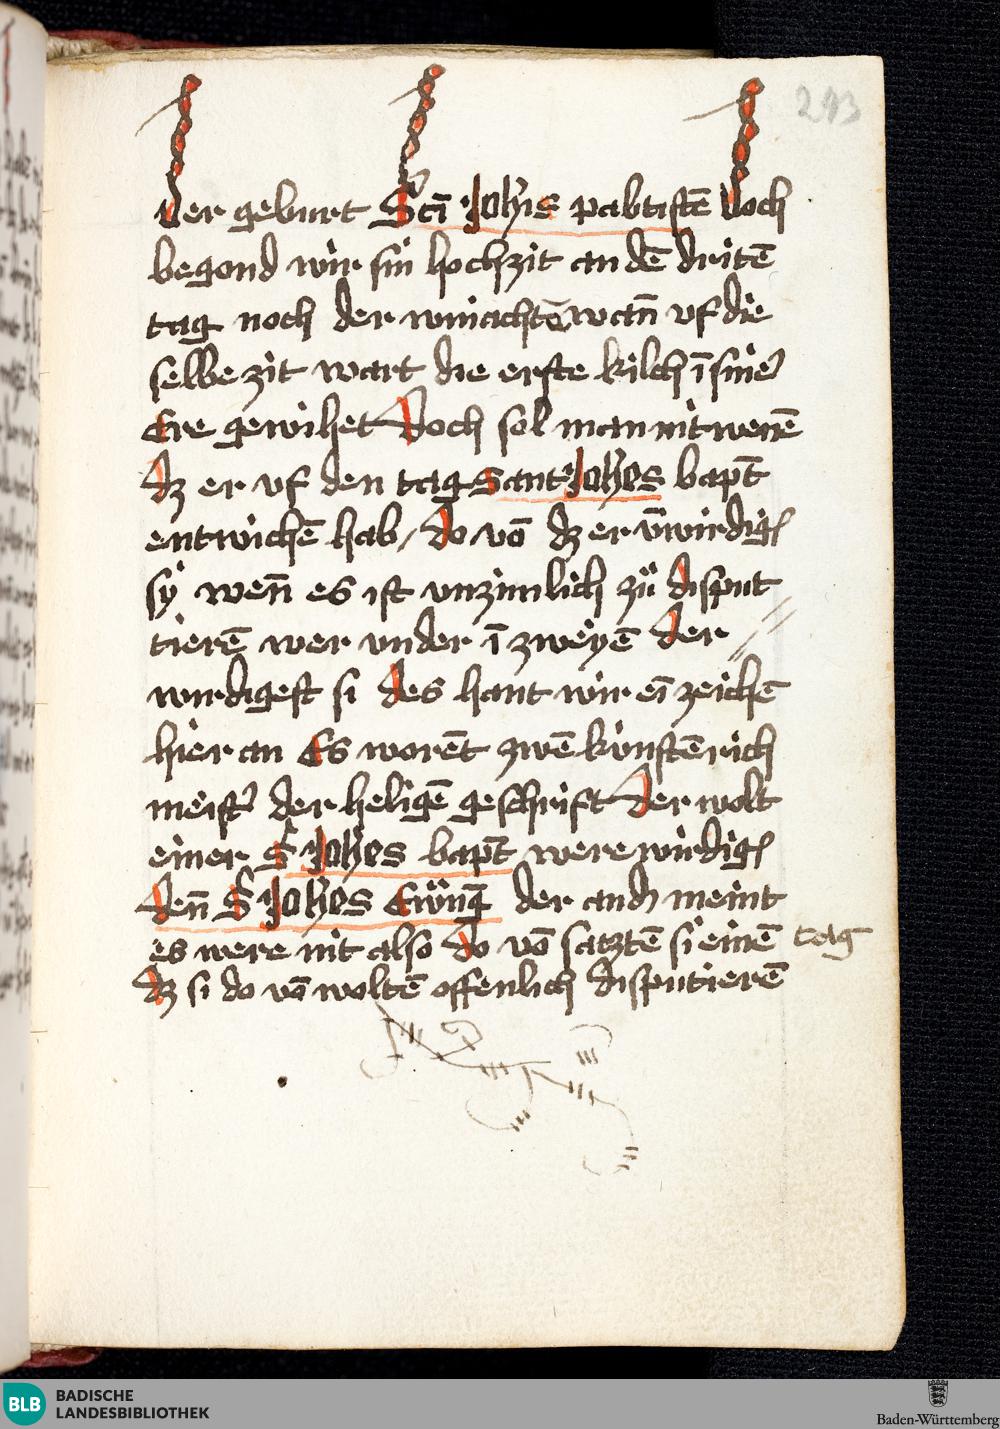 293
der geburt Sci̅ Joh̅is pabtiste̅ Doch
begond wir sin hochzit an de̅ drite̅
tag noch der winachte̅ wan̅ vf die
selbe zit wart die erste kilch i̅ sine'
Ere gewihet Doch sol man nit wene̅
dz er vf den tag Sant Joh̅es bapt̅
entwiche̅ hab / do vo̅ dz er v̅wirdig'
sÿ wen̅ es ist vnzimlich zü disput
tiere̅ wer vnder i̅ zweÿe̅ der //
wirdigest si des hant wir ei̅ zeiche̅
hier an Es wore̅t zwe̅ kunste̅rich
meist' der helige̅ geschrift Der wolt
einer S Joh̅es bapt̅ were wirdig'
den̅ S Joh̅es Ewa̅g der and' meint
es were nit also do vo̅ satzte̅ si eine̅ tag
dz si do vo̅ wolte̅ offenlich disputiere̅
BLB BADISCHE
LANDESBIBLIOTHEK
Baden-Württemberg